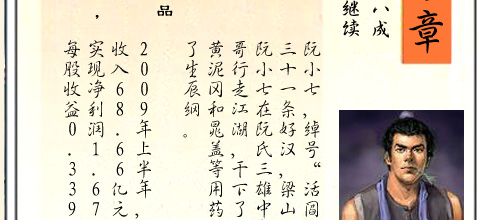 章
八成
继续
品
，
阮小七，绰号“活阎
三十一条好汉，梁山
阮小七在阮氏三雄中
哥行走江湖，干下了
黄泥冈和晁盖等用药
了生辰纲。
2009年上半年
收入68.66亿元，
实现净利润1.67
每股收益0.339